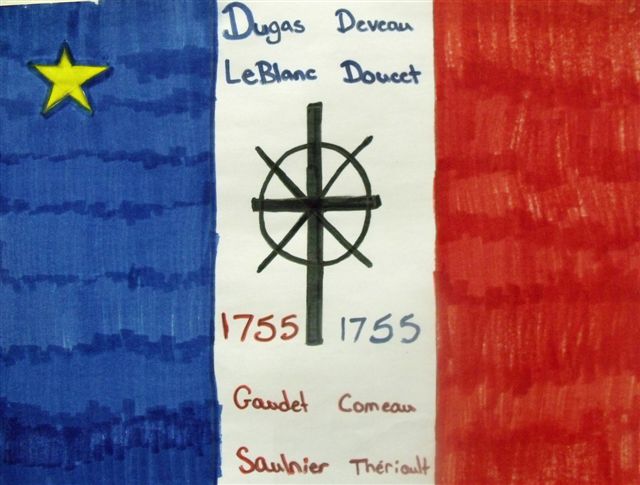 Dugas Deveau
LeBlanc Doucet
1755 1755
Gaudet Comeau
Saulnier Thériault